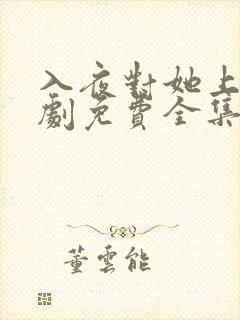 入夜對她上
劇免費全集
董雲能